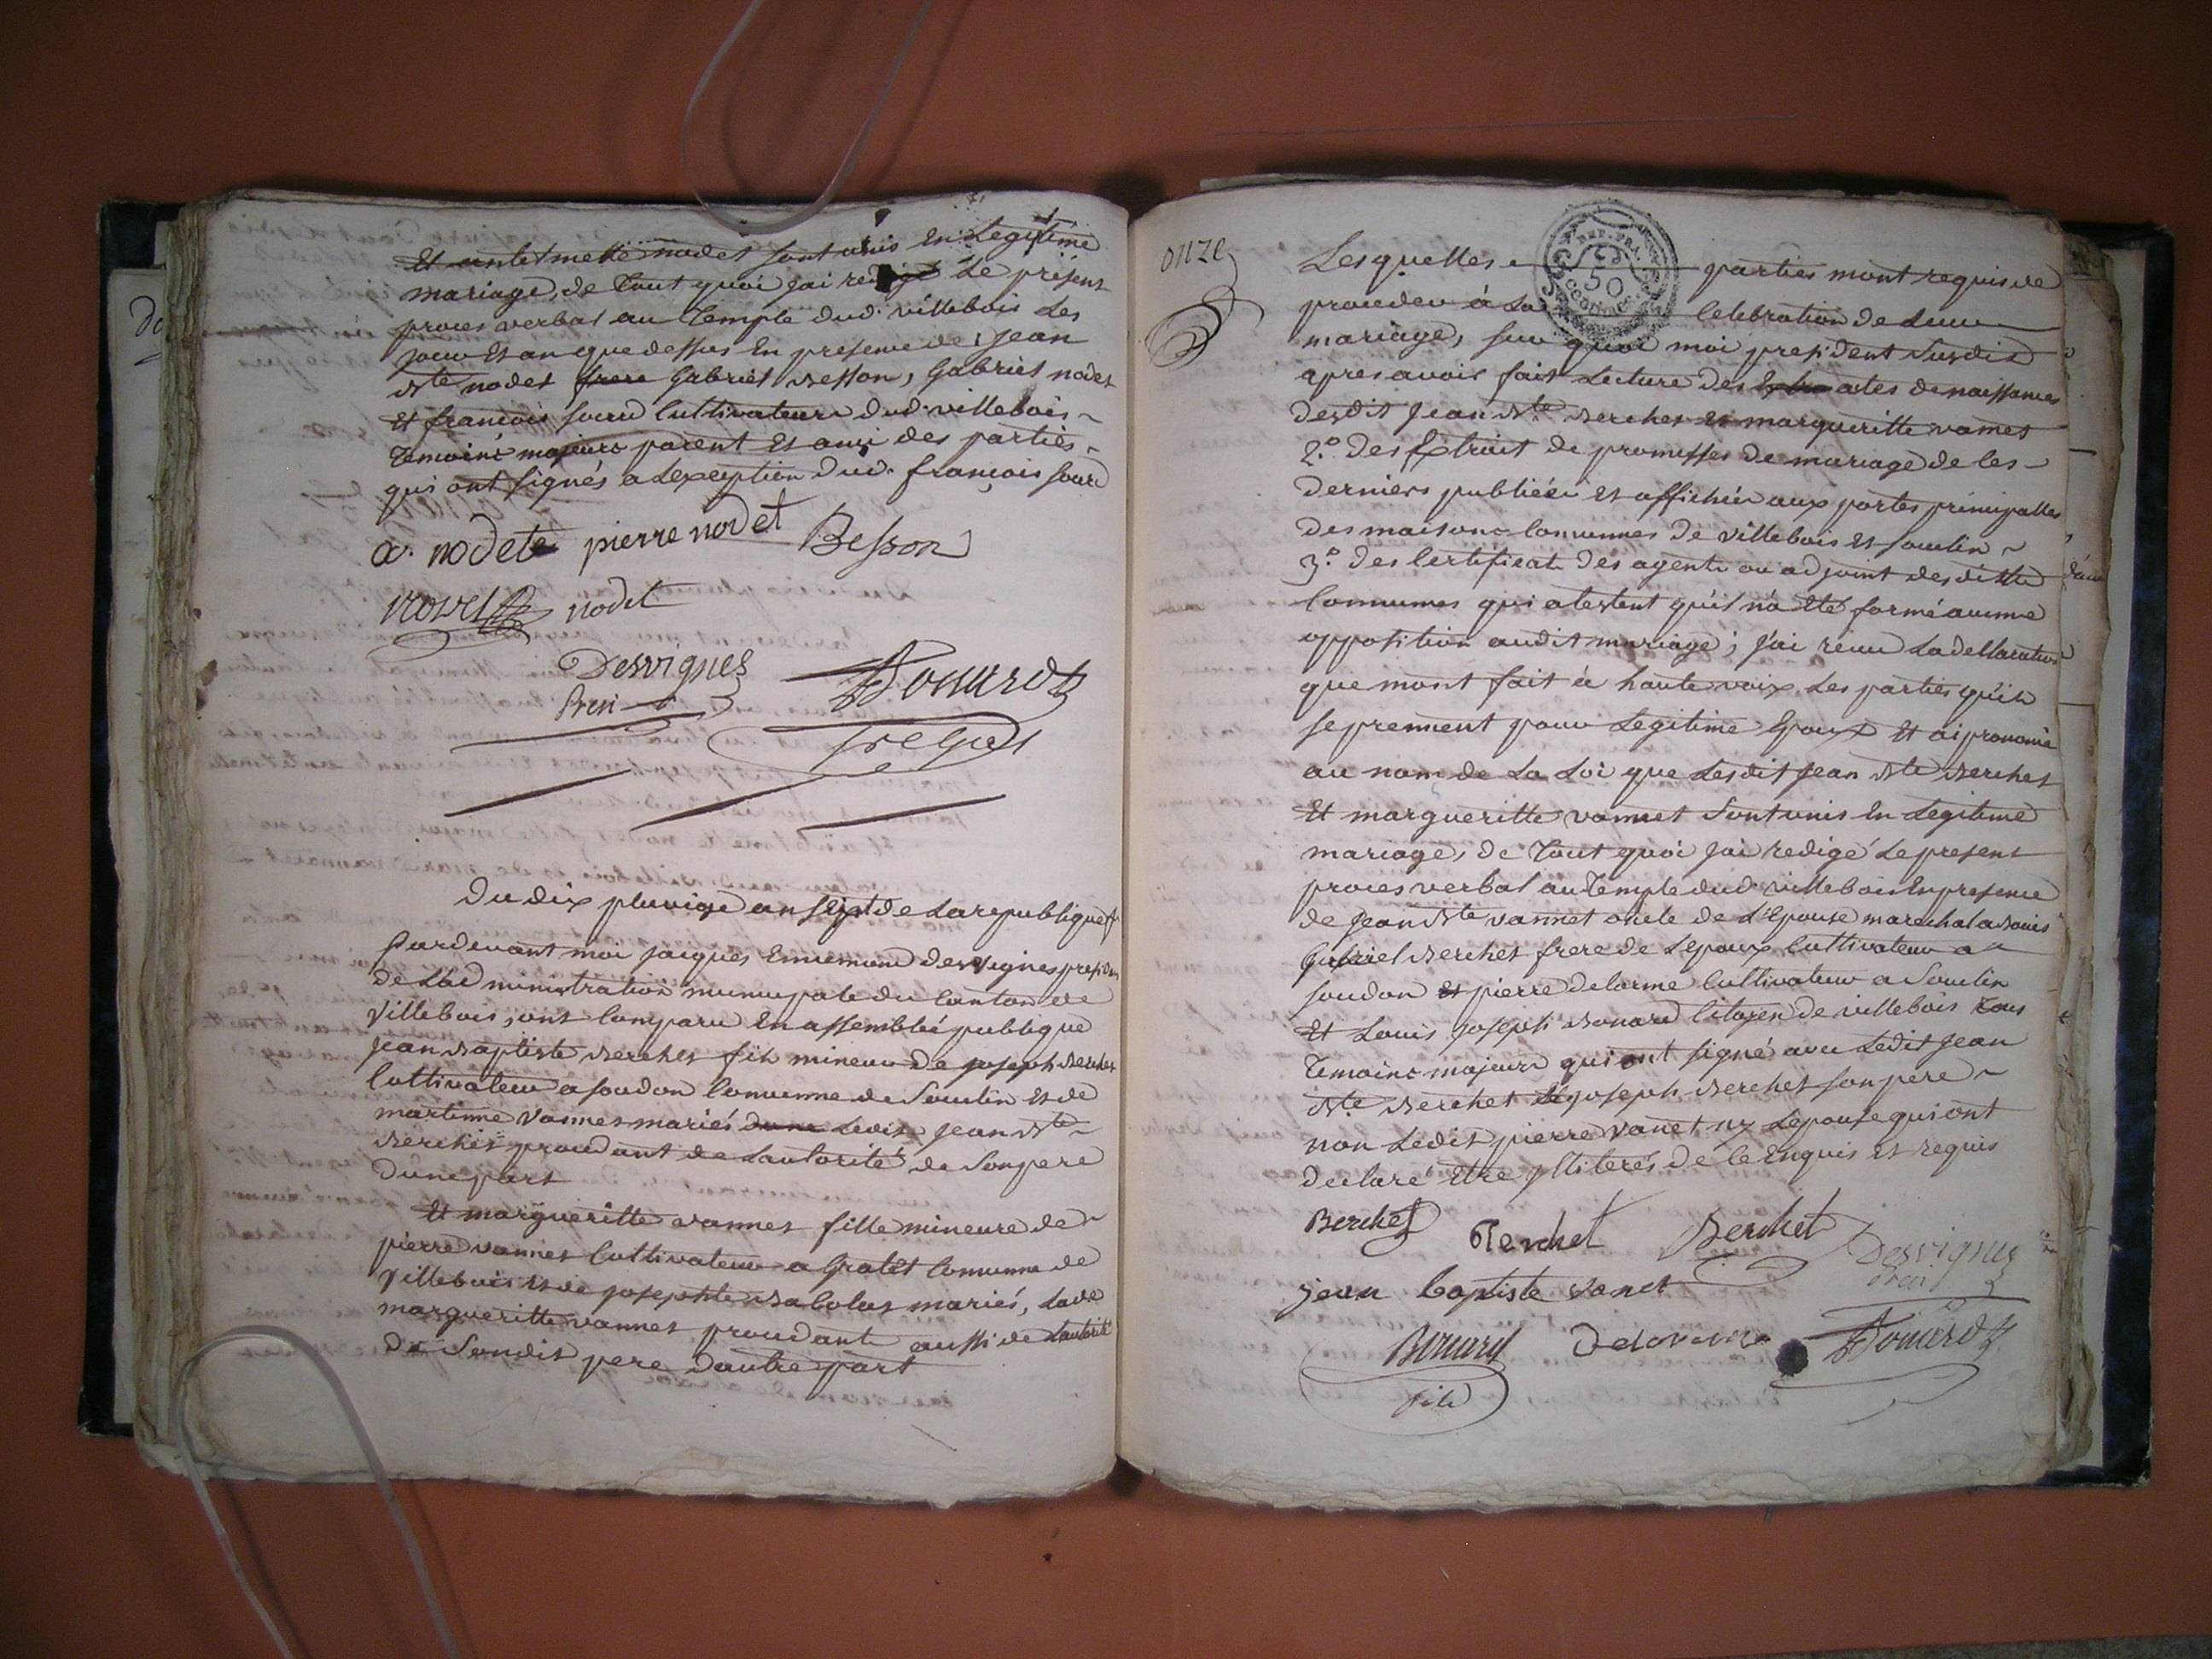 Et antelmette nodet sont unis En Legitime
mariage, de Tout quoi jai redigé Le présent
proces verbal au Temple dud. villebois Les
jour Et an que dessus En presence de Jean
Bte nodet frere Gabriel Besson, Gabriel nodet
Et francois Cultivateurs dud. villebois
Temoins majeurs parent Et ami des parties
qui ont signés a Lexception dud. françois
a. nodete pierre nodet Besson
nodet
Desvignes Bonard
Presi
Du dix pluviose an sept de La republique f
Pardevant moi jacques Ennemond desvignes presiden
de Ladministration municipale du Canton de
Villebois, ont Comparu En assemblée publique
jean Baptiste Berchet fils mineur de joseph Berchet
Cultivateur a soudon Commune de Soulin Et de
martinne vannet mariés Ledit jean Bte
Berchet proudant de Lautorité de Son pere
Dune part
Et margueritte vannet fille mineure de
pierre vannet Cultivateur a Gratet Commune de
Villebois Et de josephte mariés, Lade
margueritte vannet proudante aussi de Lautorité
De Sondit pere Dautre part
onze
Lesquelles parties mont requis de
proceder à La Celebration de Leur
mariage, sur quoi moi president Susdit
apres avoir fait Lecture des actes de naissances
desdit Jean Bte Berchet Et margueritte vannet
2.° Des Extrait de promesses de mariage de ces
derniers publiées et affichées aux portes principalles
des maisons Communnes de villebois et soulin
3.° Des Certificats des agents ou adjoint desdittes
Communes qui atestent qu'il n'a Eté formé aucune
opposition audit mariage; j'ai reçu La declaration
que mont fait à haute voix Les parties qu'ils
se prennent pour Legitime Epoux Et ai prononcé
au nom de La Loi que Lesdit jean Bte Berchet
Et margueritte vannet Sont unis En Legitime
mariage, de Tout quoi jai redigé Le present
proces verbal au Temple dud. villebois En presence
de jean Bte vannet oncle de L'Epouse marechal a
Gabriel Berchet frere de Lepoux Cultivateur a
soudon pierre delorme Cultivateur a Soulin
Et Louis joseph Bonard Citoyen de villebois tous
Temoins majeurs qui ont signé avec Ledit jean
Bte Berchet joseph Berchet son pere
non Ledit pierre vanet ny Lepouse qui ont
declaré Etre yliterés de ce Enquis Et requis
Berchet Berchet Berchet Desvignes
Presi
jean baptiste vanet
Bonard Delorme Bonard
fils